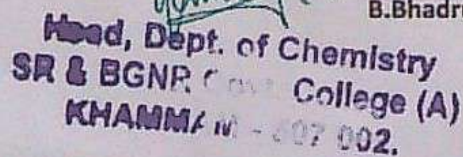 B.Bhadr
Head, Dept. of Chemistry
SR & BGNR Govt. College (A)
KHAMMAM - 507 002.